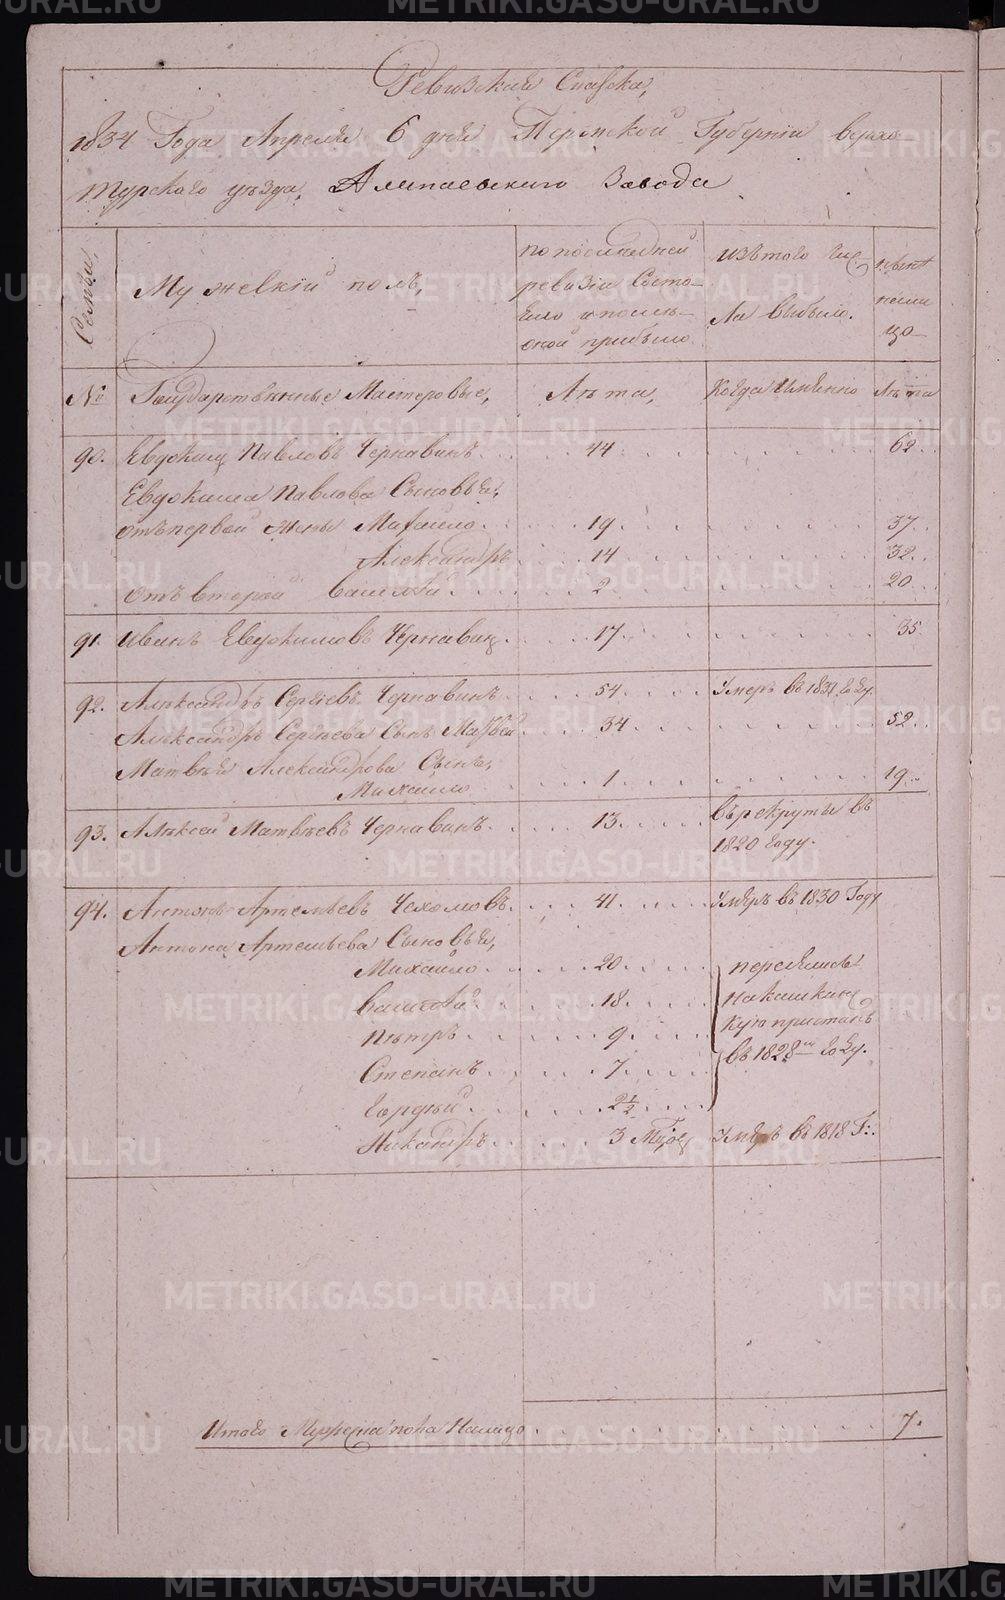 Ревизская Сказка,
1834 Года Апреля 6 дня Пермской Губернiи верхо
турского уѣзда, Алапаевского Завода
Семьи,
Мужескiй полъ,
по последней
ревизiи Состо-
яло и послѣ
оной прибыло
изъ того чис
ла выбыло.
нынѣ
на ли
цо
№
Государственные Мастеровые,
Лѣта,
Когда имянно
Лѣта
90. Евдокимъ Павловъ Чернавинъ. 44. 62.
Евдокима Павлова Сыновья,
отъ первой жены Михайло. 19. 37.
Александръ 14. 32.
отъ второй Василiй. 2. 20.
91. Иванъ Евдокимовъ Чернавин. 17. 35.
92. Александръ Сергѣевъ Чернавинъ 54. Умеръ въ 1831 году.
Александръ Сергѣева Сынъ Матвѣй 34. 52.
Матвѣя Александрова Сынъ,
Михайло 1. 19.
93. Алексей Матвѣевъ Чернавинъ. 13. въ рекруты въ
1820 году.
94. Антонъ Артемьевъ Чехомовъ. 41. Умеръ въ 1830 Году
Антона Артемьева Сыновья,
Михайло. 20. переведены
Василiй 18. на кашкин
Петръ. 9. скую пристань
Степанъ. 7. въ 1828м году.
Гордѣй. 2½
Никандръ. 3 Мѣсяц Умеръ въ 1818 Г:.
Итого Мужеска пола Налицо 7.
METRIKI.GASO-URAL.RU